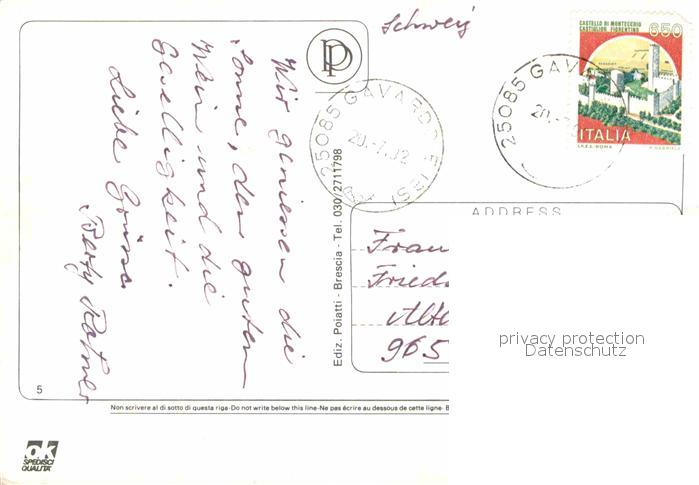 Wir geniessen die
Sonne, den guten
Wein und die
Geselligkeit.
Liebe Grüsse
Schweiz
CASTELLO DI MONTECCHIO
CASTIGLION FIORENTINO
650
ITALIA
I.P.Z.S. ROMA
25085 GAVARDO
20.-7.
25085 GAVARDO (BS)
20.-7.92
Ediz. Poiatti - Brescia - Tel. 030/2711798
ADDRESS
Frau
Fried
Alt
965
privacy protection
Datenschutz
5
Non scrivere al di sotto di questa riga-Do not write below this line-Ne pas écrire au dessous de cette ligne-
ok
SPEDISCI
QUALITÀ